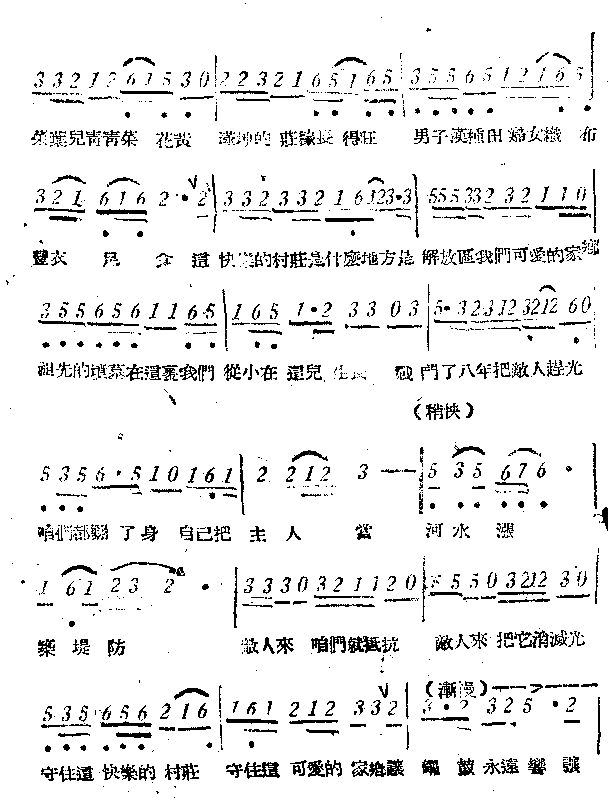 3 3 2 1 2 6 1 5 3 0 | 2 2 3 2 1 6 5 1 6 5 | 3 5 5 6 5 1 2 1 6 5
菜葉兒青青菜 花黃 的 莊稼長 得旺 男子漢種田 婦女織 布
3 2 1 6 1 6 2 · 2 | 3 3 2 3 3 2 1 6 1 2 3 · 3 | 5 5 5 3 3 2 3 2 1 1 0
豐衣 足 食 這 快樂的村莊是什麼地方是 解放區我們可愛的家鄉
3 5 5 6 5 6 1 1 6 5 | 1 6 5 1 · 2 3 3 0 3 | 5 · 3 2 3 1 2 3 2 1 2 6 0
祖先的墳墓在這裏我們 從小在 這兒 生長 戰 鬥了八年把敵人趕光
(稍快)
5 3 5 6 · 5 1 0 1 6 1 | 2 2 1 2 3 — | 5 3 5 6 7 6 ·
咱們都翻 了身 自己把 主 人 當 河 水 漲
1 6 1 2 3 2 · | 3 3 3 0 3 2 1 1 2 0 | 5 5 5 0 3 2 1 2 3 0
築 堤 防 敵人來 咱們就抵抗 敵人來 把它消滅光
(漸慢)
5 3 5 6 5 6 2 1 6 | 1 6 1 2 1 2 3 3 2 | 3 · 2 3 2 5 · 2
守住這 快樂的 村莊 守住這 可愛的 家鄉讓 鑼 鼓 永遠 響 讓